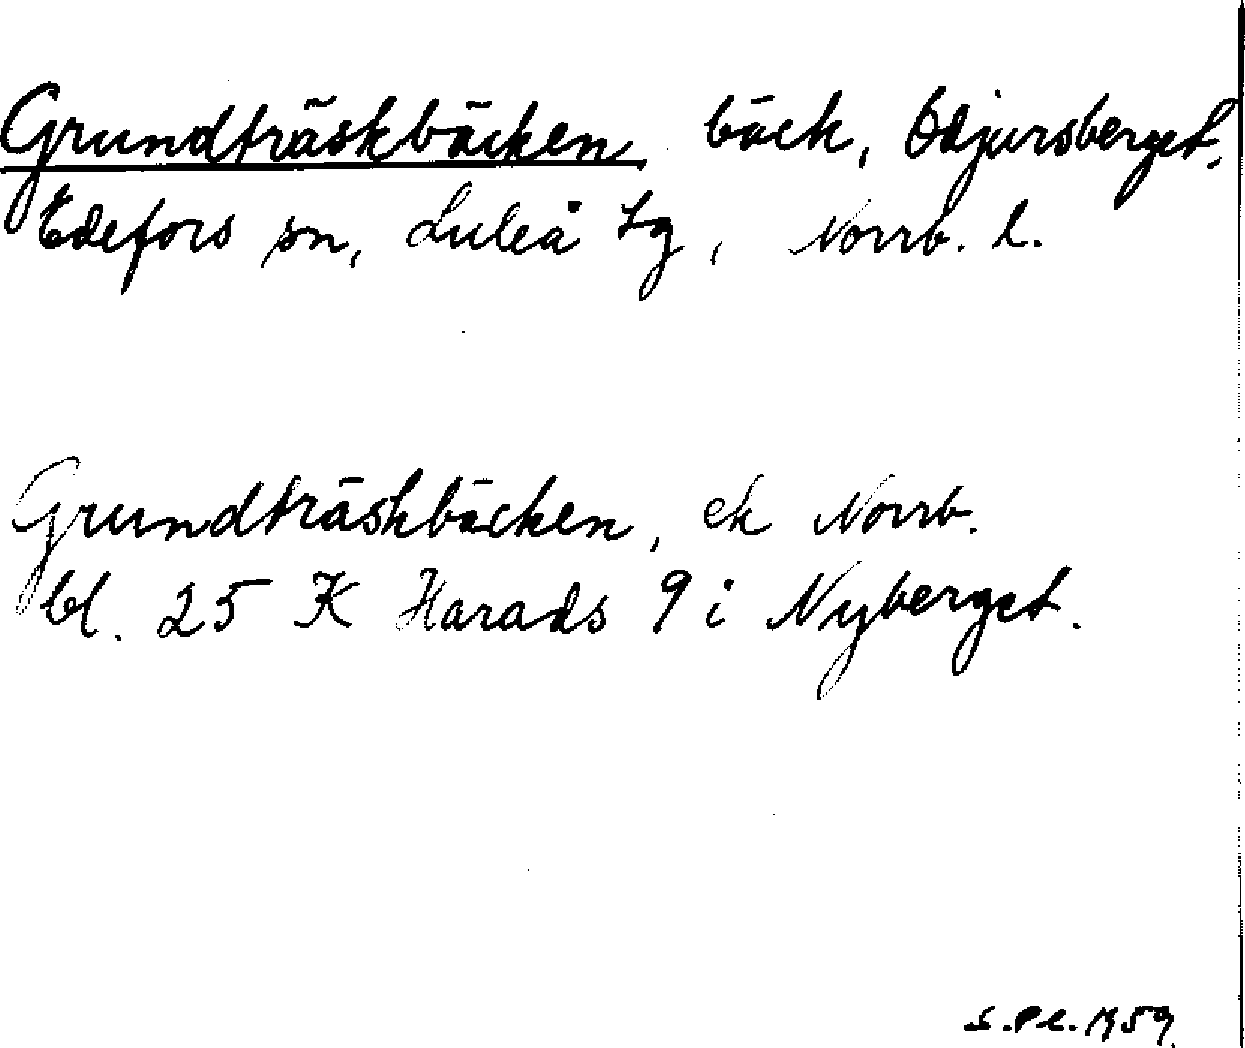 Grundträskbäcken bäck, Odjursberget,
Edefors sn, Luleå tg, Norrb. l.
Grundträskbäcken, ek Norrb.
bl. 25 K Harads 9 i Nyberget.
S.Pl. 1959.